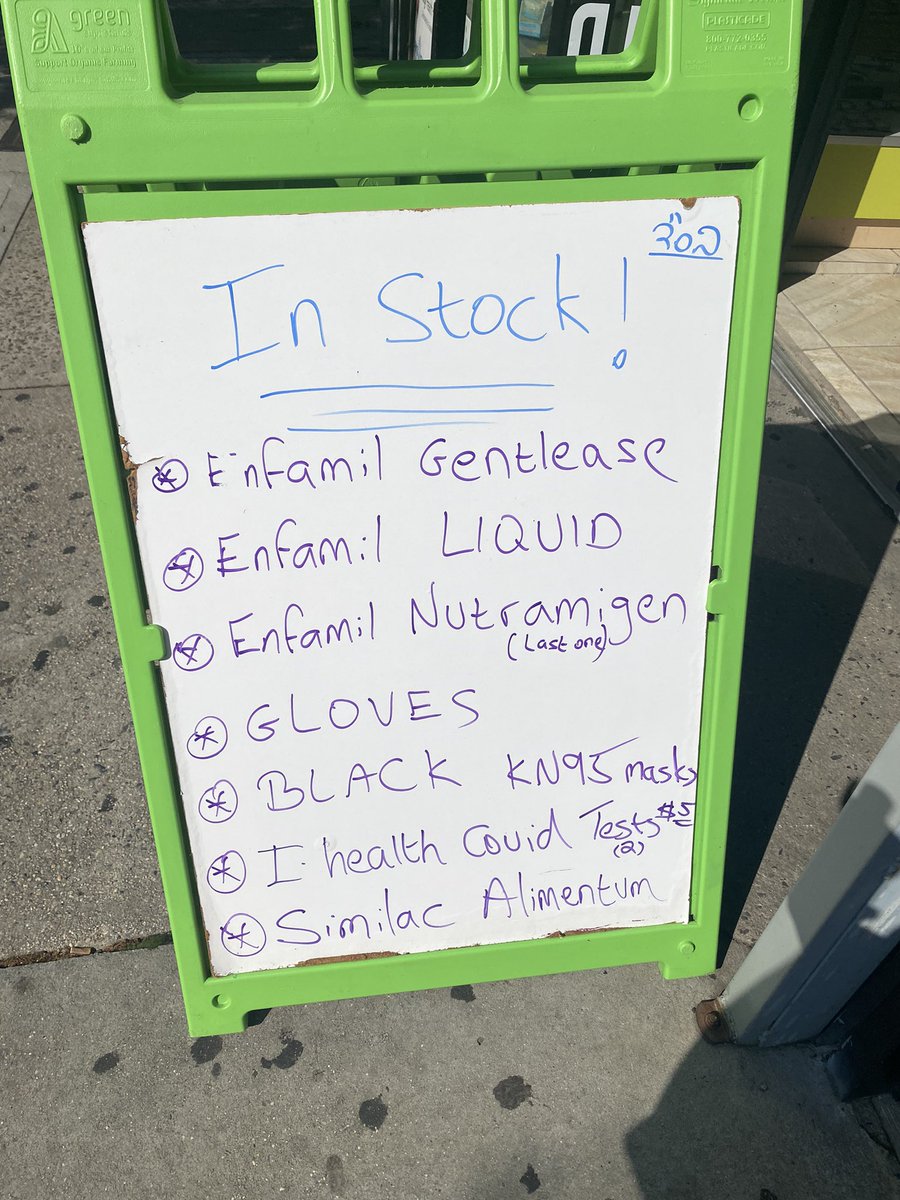 green
Support Organic Farming
PLASTICADE
800-772-0355
בס"ד
In Stock!
Enfamil Gentlease
Enfamil LIQUID
Enfamil Nutramigen
(Last one)
GLOVES
BLACK KN95 masks
I-health Covid Tests $5
(2)
Similac Alimentum